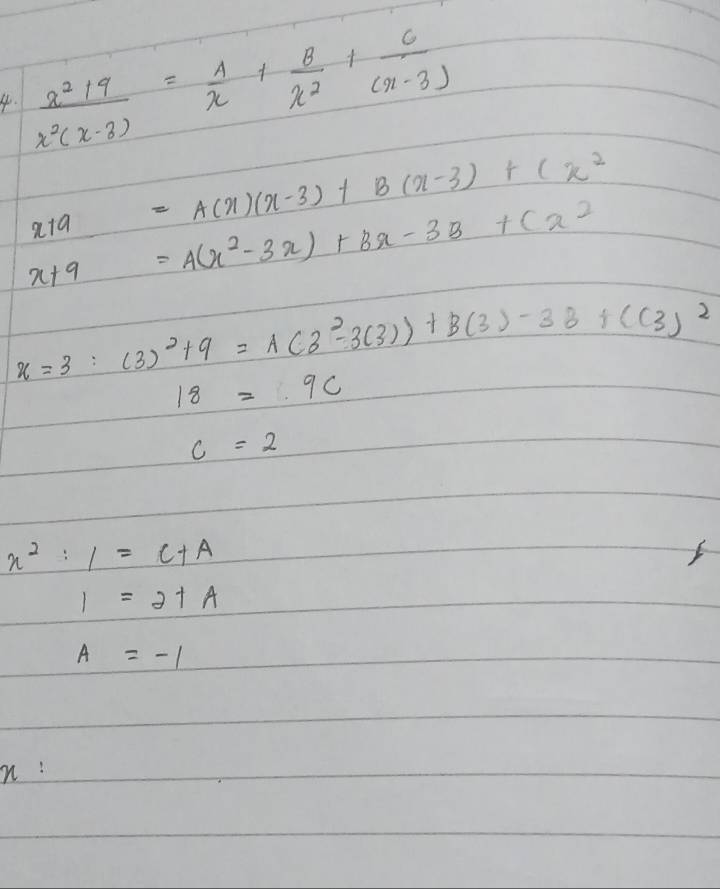 4. x²+9 / x²(x-3) = A/x + B/x² + C/(x-3)
x+9 = A(x)(x-3) + B(x-3) + Cx²
x+9 = A(x²-3x) + Bx - 3B + Cx²
x=3 : (3)²+9 = A(3²-3(3)) + B(3) - 3B + C(3)²
18 = 9C
C = 2
x² : 1 = C+A
1 = 2+A
A = -1
x :